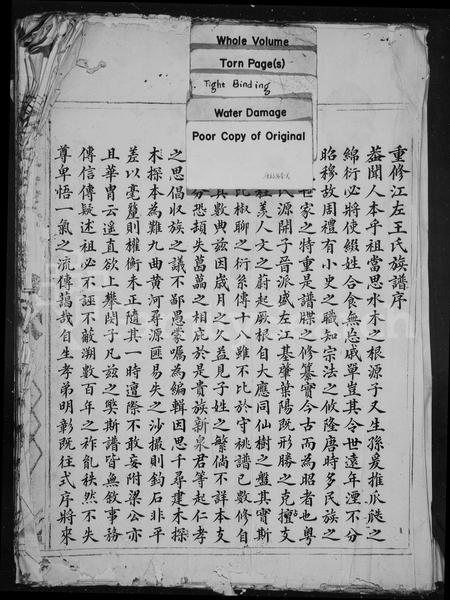 Whole Volume
Torn Page(s)
Tight Binding
Water Damage
Poor Copy of Original
重修江左王氏族譜序
蓋聞人本乎祖當思水木之根源子又生孫爰推瓜瓞之
綿衍必將使綴姓合食無忘戚單豈其令世遠年湮不分
昭穆故周禮有小史之職知宗法之攸隆唐時多民族之
世家之特重是譜牒之修纂實今古而為昭者也粵
氏源開子晉派盛左江基肇葉陽既形勝之克擅支
羡人文之蔚起厥根自大應同仙樹之盤其實斯
椒聊之衍系傳十八雖不比於守祧譜已數修自
其數典茲因歲月之久益見子姓之繁倘不詳本支
恐頻失蔦蘿之相庇於是貴族新泉君等起仁孝
之思倡收族之議不鄙愚蒙囑為編輯因思千尋建木探
木探本為難九曲黃河尋源匪易失之沙撮則鈞石非平
差以毫釐則權衡未正隨其一時遭際不敢妄附梁公亦
且華胄云遙直欲上攀閔子凡茲之獘斯譜皆無敘事務
傳信傳疑述祖必不誣不蔽溯數百年之祚能秩然不失
尊卑悟一氣之流傳鵠哉自生孝弟明彰既往式序將來